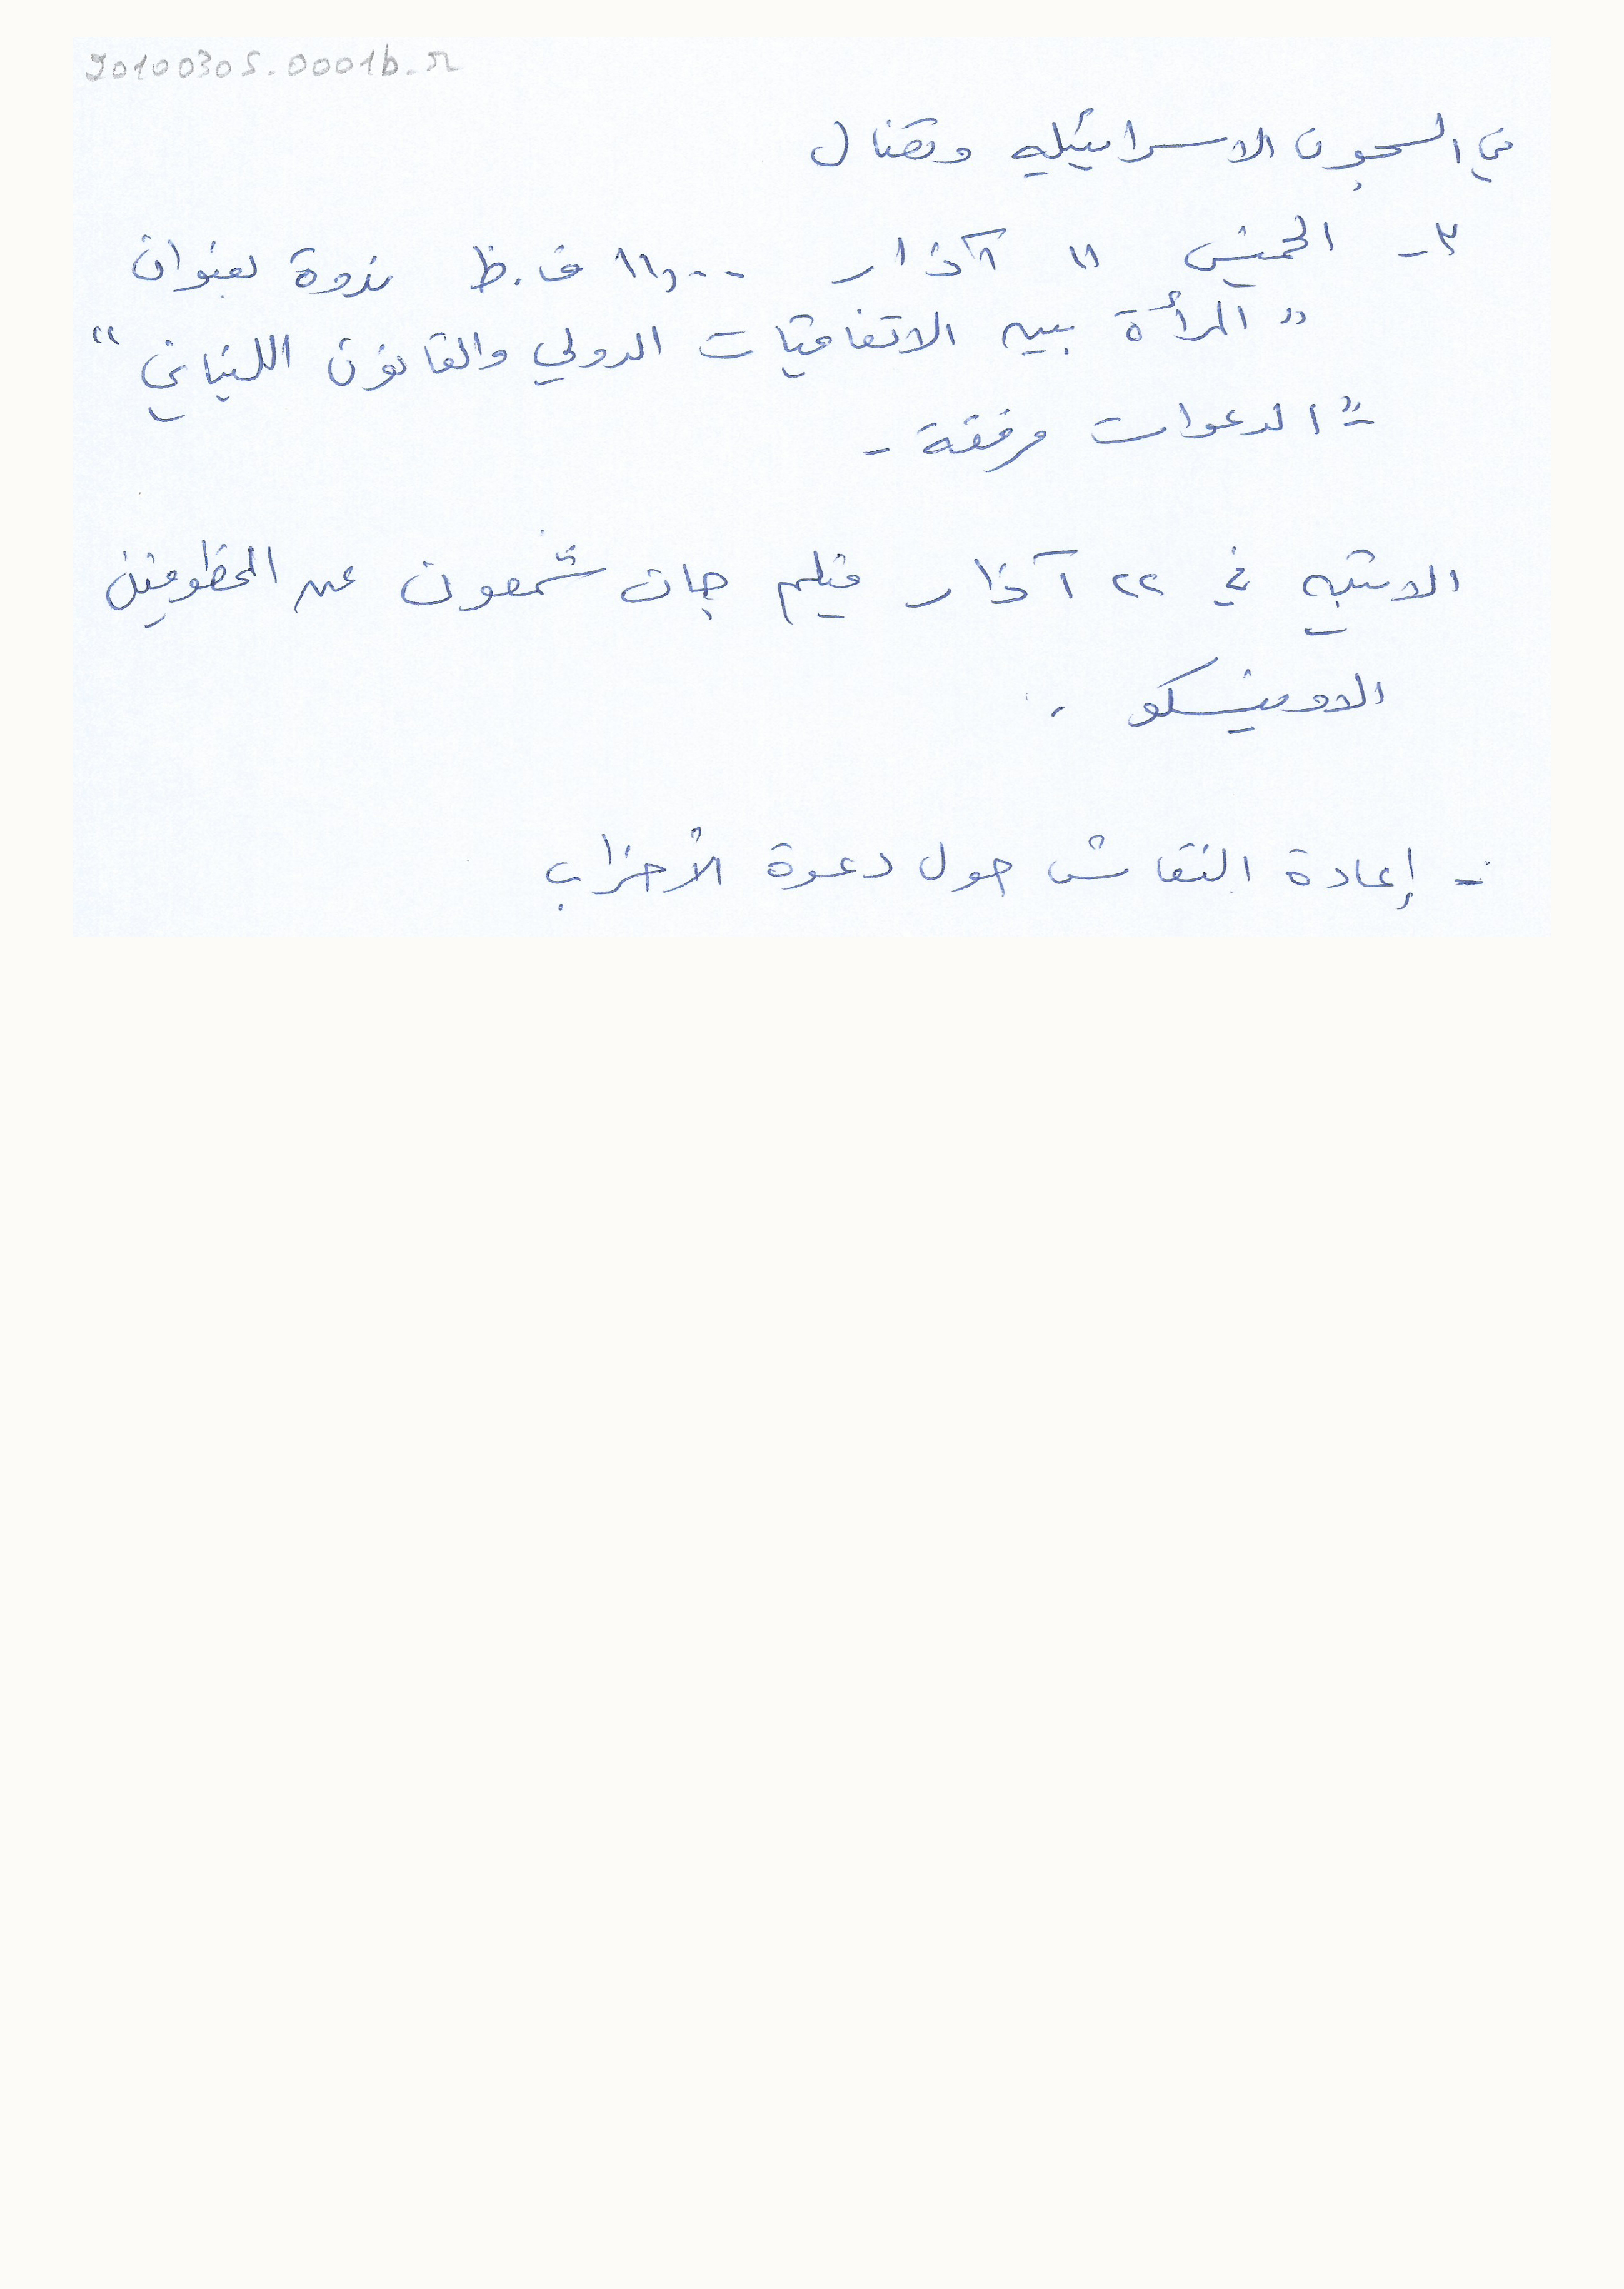 20100305.0001b.r
في السجون الاسرائيليه ونضال
٣- الخميس ١١ آذار ١١,٠٠ ق.ظ ندوة بعنوان
"المرأة بين الاتفاقيات الدولي والقانون اللبناني"
- الدعوات مرفقة -
الاثنين في ٢٢ آذار فيلم جان شمعون عن المخطوفين
الاونيسكو .
- إعادة النقاش حول دعوة الأحزاب